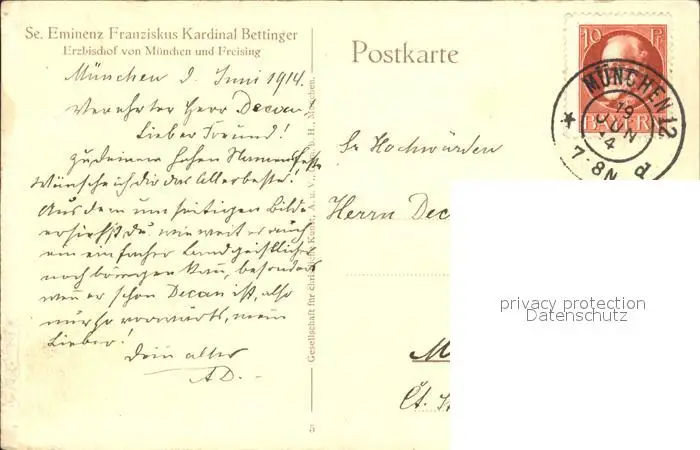 Se. Eminenz Franziskus Kardinal Bettinger
Erzbischof von München und Freising
München d. Juni 1914.
Verehrter Herr Decan
Lieber Freund!
Zu deinem hohen Namensfeste
wünsche ich dir das Allerbeste!
Aus dem umseitigen Bilde
ersiehst du, wie weit es auch
ein einfacher Landgeistlicher
noch bringen kann, besonders
wenn er schon Decan ist, also
nur so vorwärts, mein
Lieber!
Dein alter
AD.
Gesellschaft für christliche Kunst, München.
5
Postkarte
10 Pf
BAYERN
MÜNCHEN 12
18
JUN
14
7-8N
Sr Hochwürden
Herrn Dec
M
Ct. St
privacy protection
Datenschutz